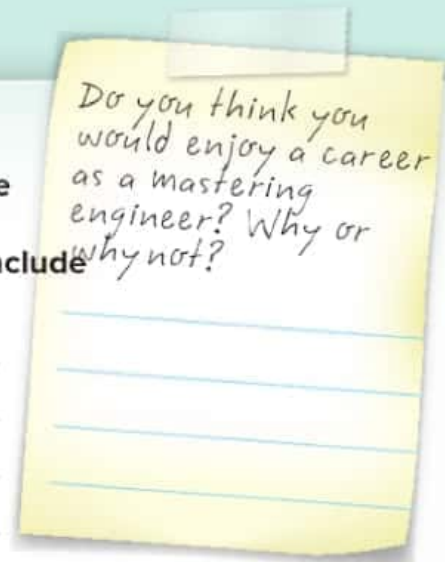 Do you think you
would enjoy a career
as a mastering
engineer? Why or
why not?